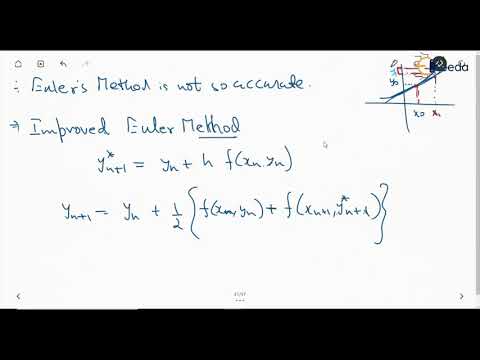 ∴ Euler's Method is not so accurate.
→ Improved Euler Method
y*ₙ₊₁ = yₙ + h f(xₙ, yₙ)
yₙ₊₁ = yₙ + 1/2 { f(xₙ, yₙ) + f(xₙ₊₁, y*ₙ₊₁) }
eeda
y₀
x₀ x₁